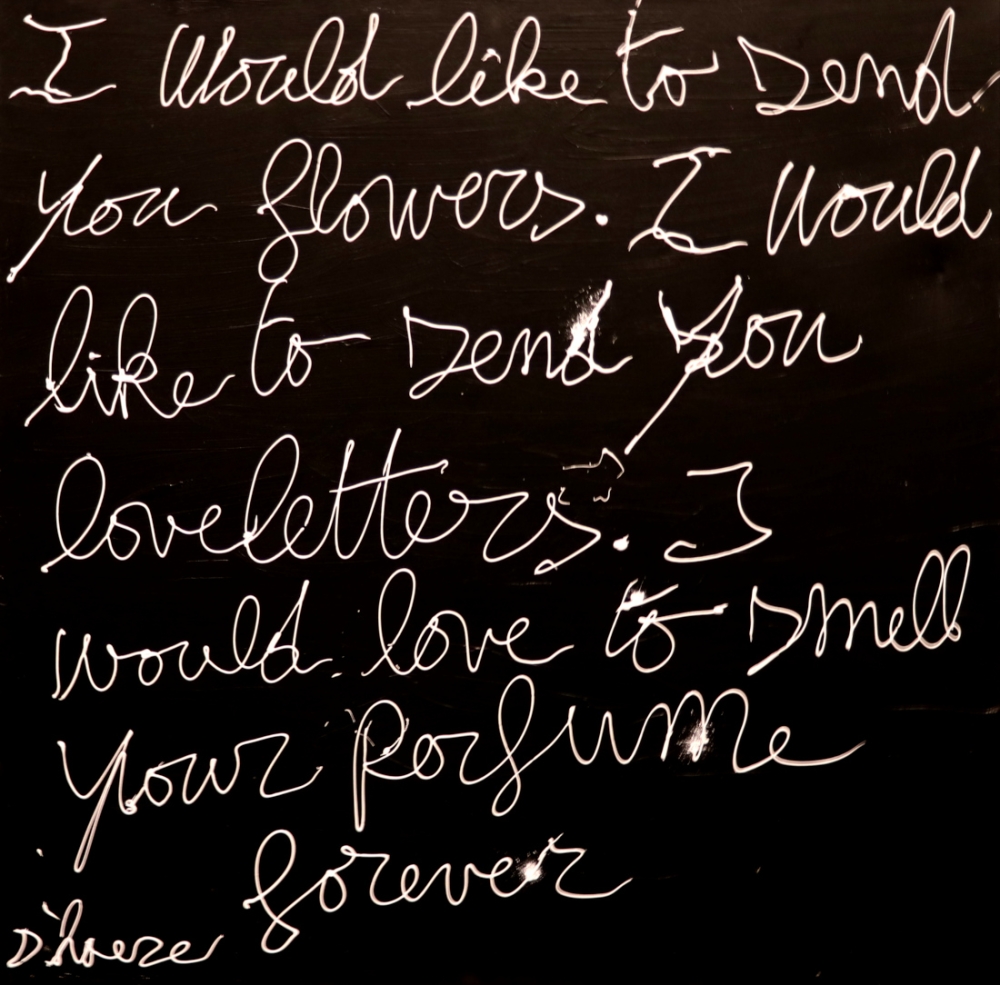 I would like to send
you flowers. I would
like to send you
loveletters. I
would love to smell
your Perfume
forever